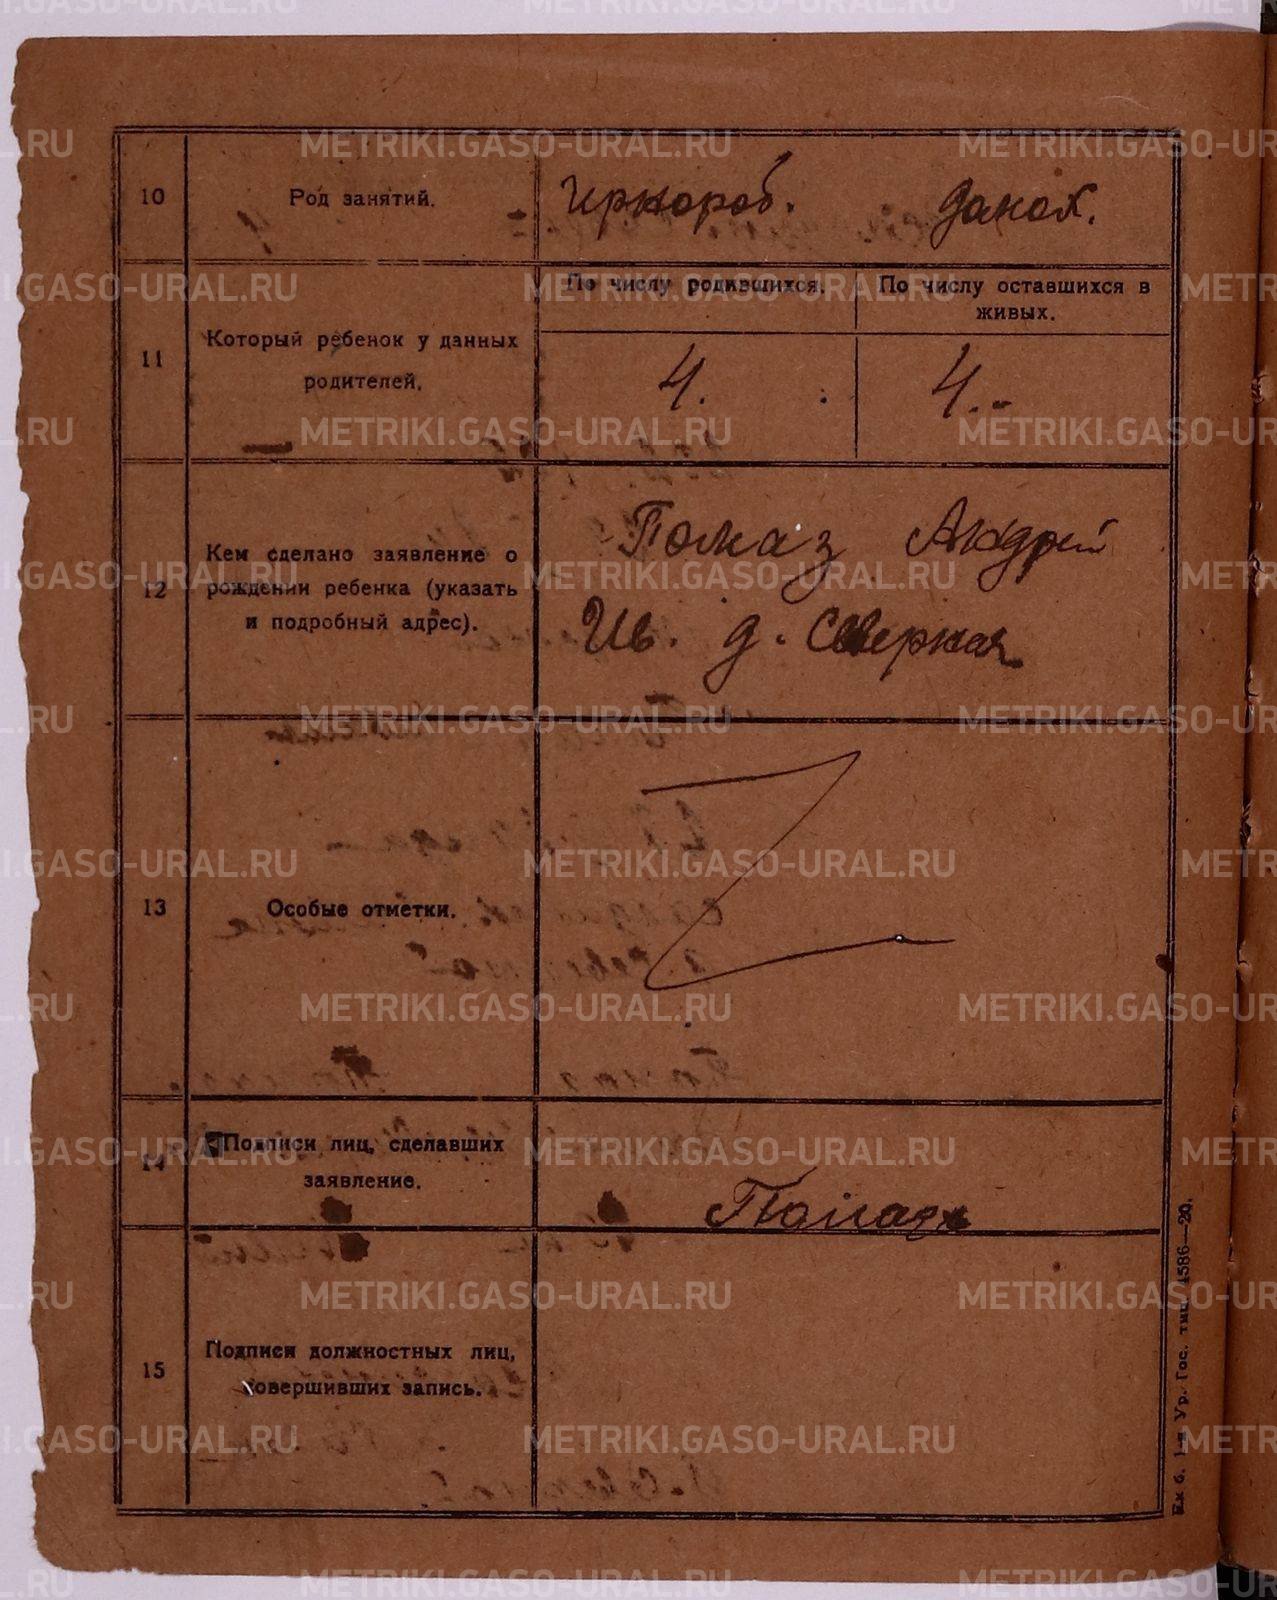 10 Род занятий. чрнороб. домох.
По числу родившихся. По числу оставшихся в
живых.
11 Который ребенок у данных
родителей. 4. 4.
Помаз Андрей
12 Кем сделано заявление о
рождении ребенка (указать
и подробный адрес). Ив. д. Северная
13 Особые отметки.
14 Подписи лиц, сделавших
заявление. Помаз
15 Подписи должностных лиц,
совершивших запись.
Ек б. 1-я Ур. Гос. тип. 4586—20.
METRIKI.GASO-URAL.RU